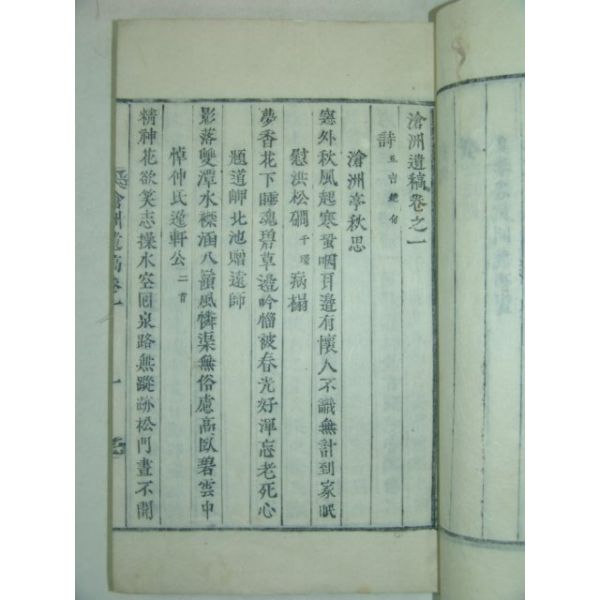 滄洲遺稿卷之一
詩 五言絶句
滄洲亭秋思
窓外秋風起寒蛩咽耳邊有懷人不識無計到家眠
慰洪松磵 千璟 病榻
夢香花下睡魂碧草邊吟惱被春光好渾忘老死心
題道岬北池贈遠師
影落雙潭水襟涵八嶺風憐渠無俗慮高臥碧雲中
悼仲氏逸軒公 二首
精神花欲笑志操水空圓泉路無蹤跡松門晝不開
滄洲遺稿卷一 一